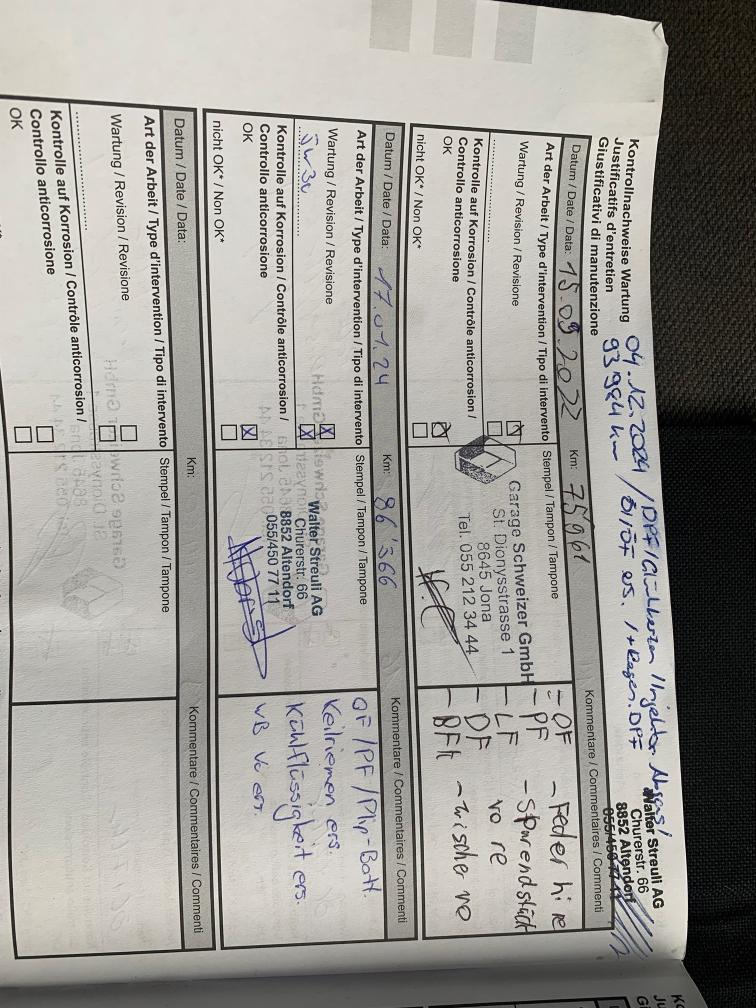 Kontrollnachweise Wartung
Justificatifs d'entretien
Giustificativi di manutenzione
04.12.2024 / DPF / Glühkerzen / Injektor
93984 km / Öl/ÖF ers. / + Regen. DPF
Walter Streuli AG
Churerstr. 66
8852 Altendorf
055/450 77 11
Datum / Date / Data: 15.09.2022 Km: 75961 Kommentare / Commentaires / Commenti
Art der Arbeit / Type d'intervention / Tipo di intervento Stempel / Tampon / Tampone
Wartung / Revision / Revisione
Kontrolle auf Korrosion / Contrôle anticorrosion /
Controllo anticorrosione
OK
nicht OK* / Non OK*
Garage Schweizer GmbH
St. Dionysstrasse 1
8645 Jona
Tel. 055 212 34 44
- ÖF - Feder hi re
- PF - Spurendstück
- LF vo re
- DF
- BFH - wischer ve
Datum / Date / Data: 17.01.24 Km: 86'366 Kommentare / Commentaires / Commenti
Art der Arbeit / Type d'intervention / Tipo di intervento Stempel / Tampon / Tampone
Wartung / Revision / Revisione
5w30
Kontrolle auf Korrosion / Contrôle anticorrosion /
Controllo anticorrosione
OK
nicht OK* / Non OK*
Walter Streuli AG
Churerstr. 66
8852 Altendorf
055/450 77 11
ÖF / PF / Php-Batt.
Keilriemen ers.
Kühlflüssigkeit ers.
WB vo ers.
Datum / Date / Data: Km: Kommentare / Commentaires / Commenti
Art der Arbeit / Type d'intervention / Tipo di intervento Stempel / Tampon / Tampone
Wartung / Revision / Revisione
Kontrolle auf Korrosion / Contrôle anticorrosion /
Controllo anticorrosione
OK